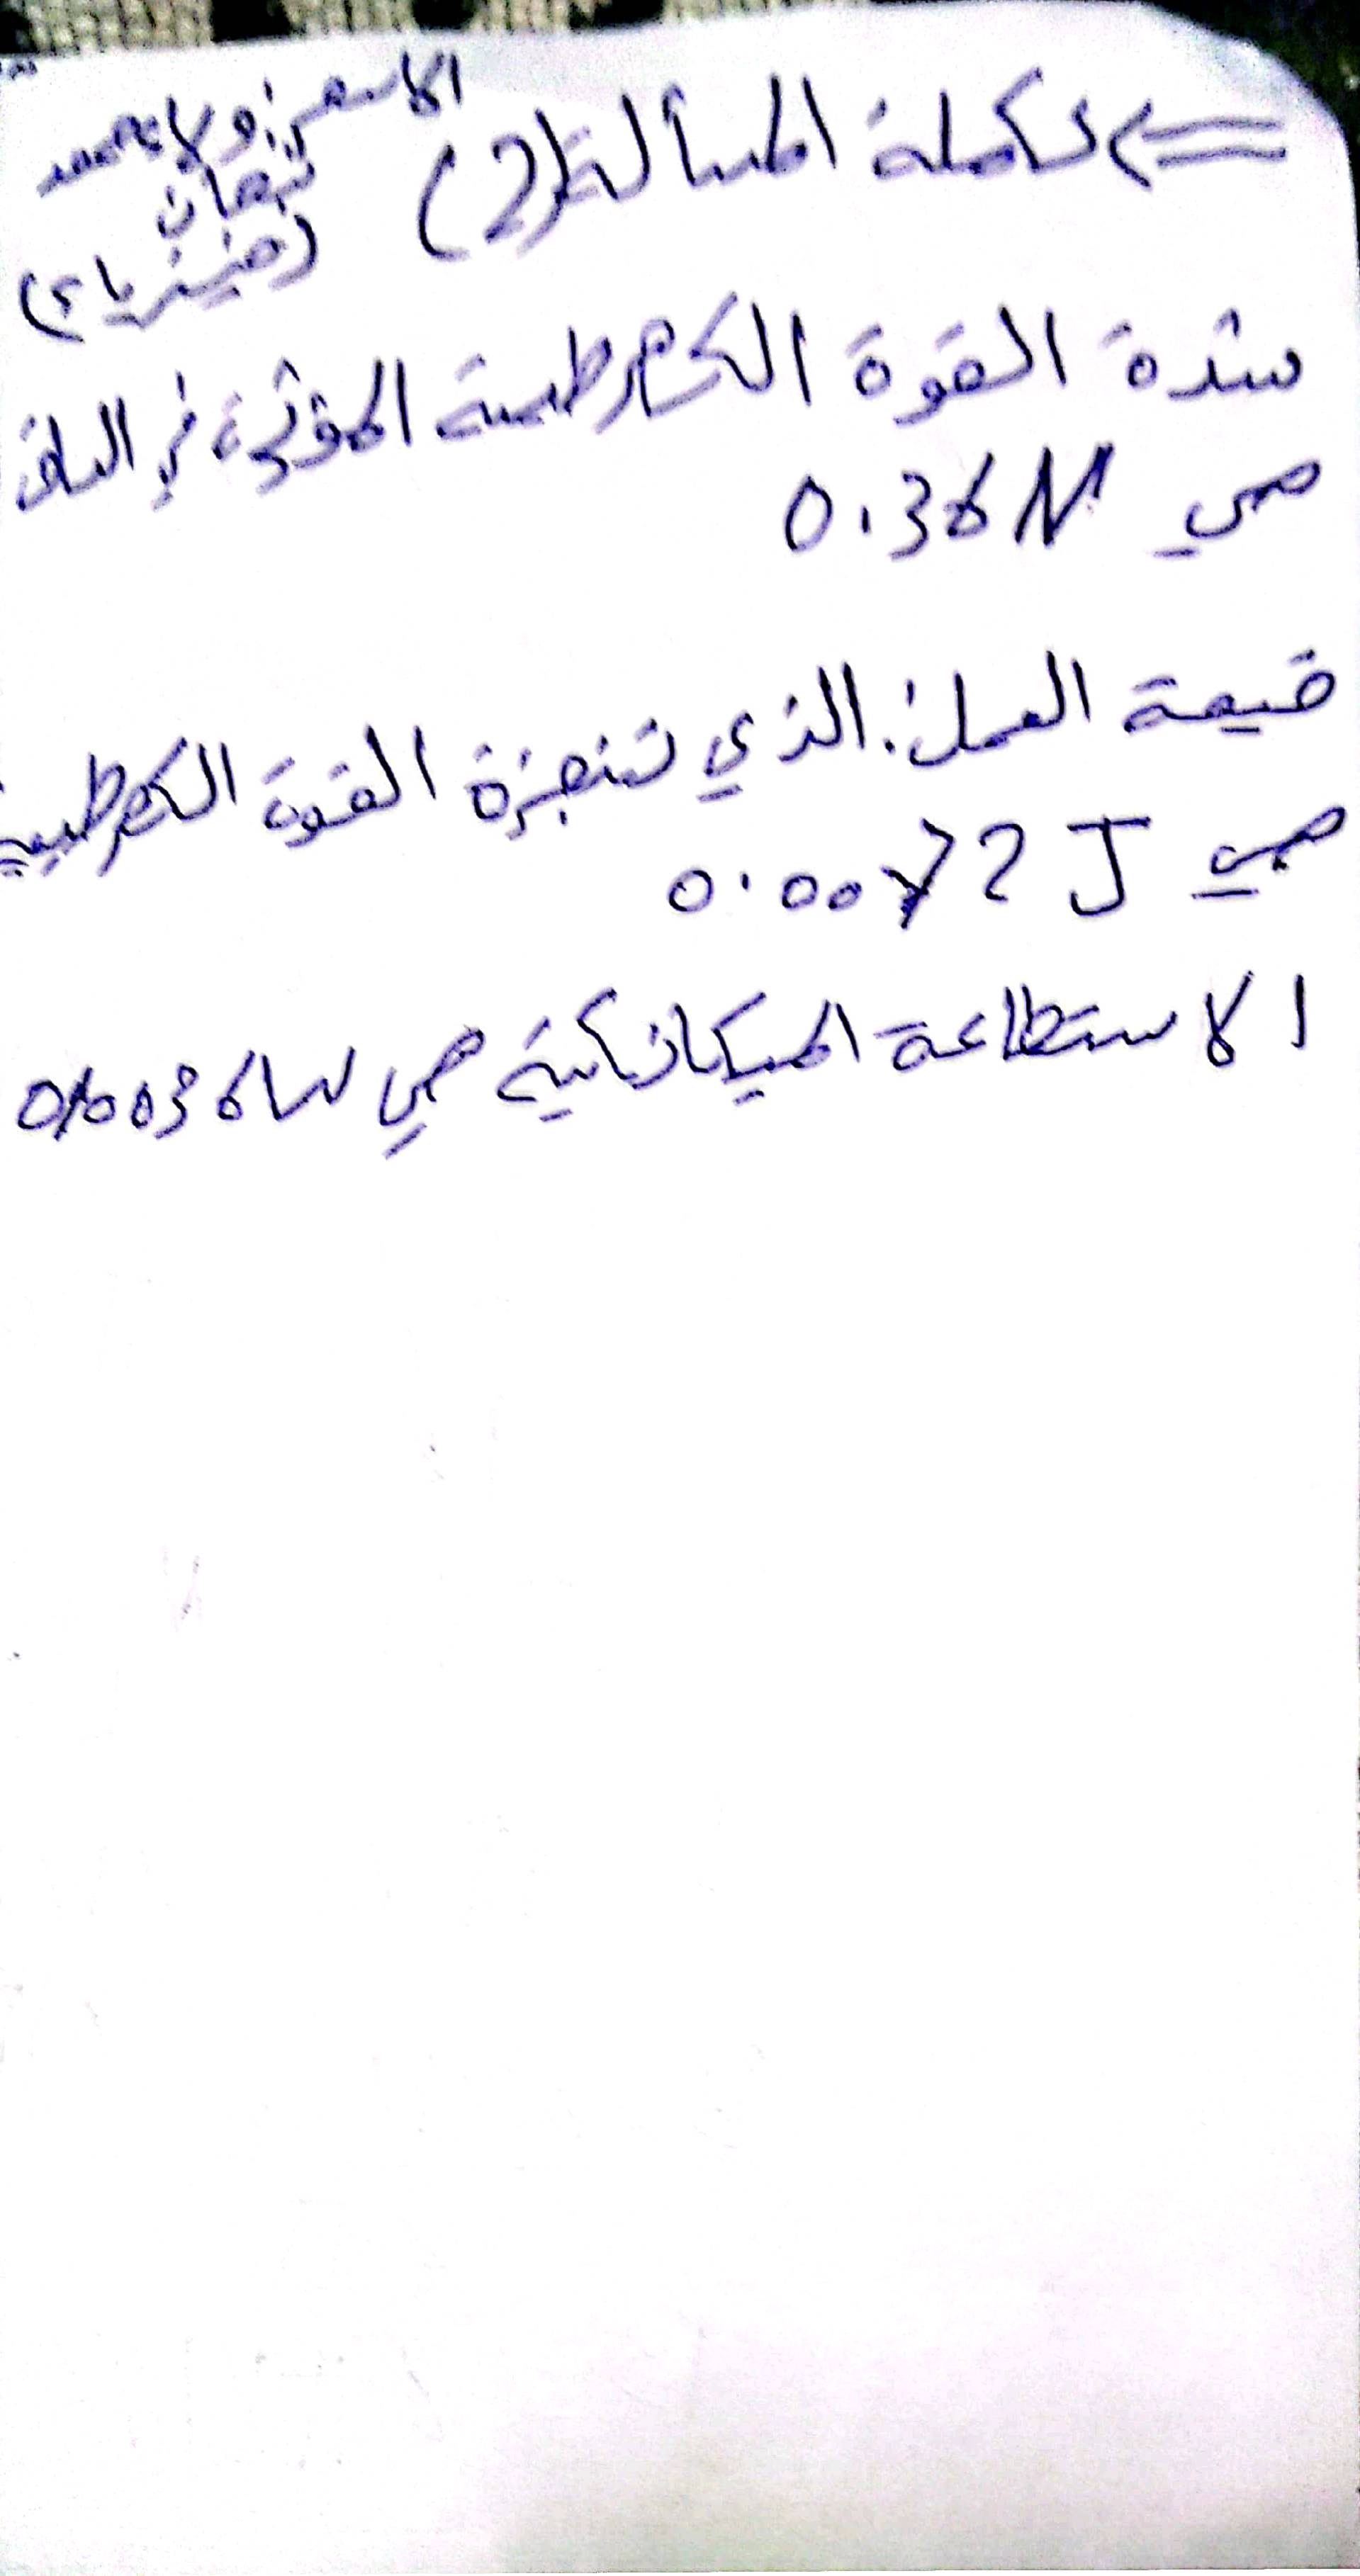 <= تكملة المسألة (2)
(فيزياء)
شدة القوة الكهرطيسية المؤثرة في الساق
هي 0.36 N
قيمة العمل: الذي تنجزة القوة الكهرطيسية
هي 0.0072 J
الاستطاعة الميكانيكية هي